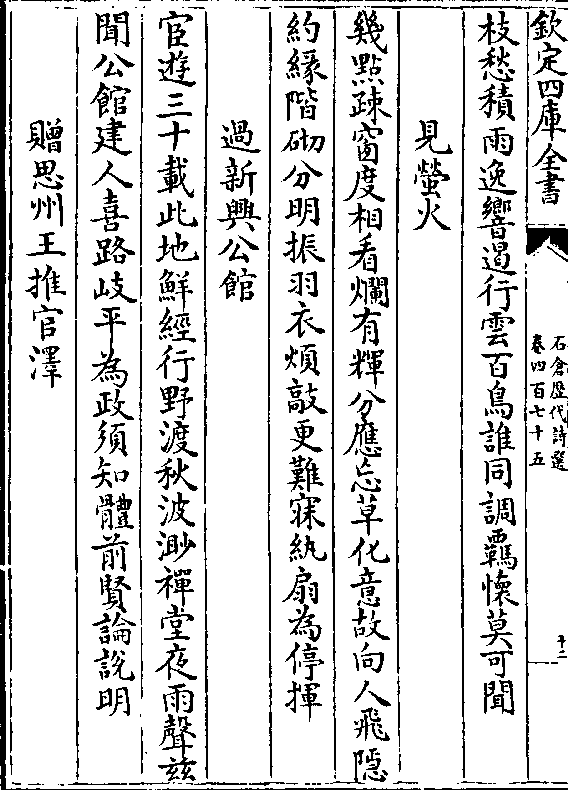 欽定四庫全書
石倉歷代詩選
卷四百七十五
十二
枝愁積雨逸響遏行雲百鳥誰同調羈懷莫可聞
見螢火
幾點疎窗度相看爛有輝分應忘草化意故向人飛隠
約緣階砌分明振羽衣煩敲更難寐紈扇為停揮
過新興公館
宦遊三十載此地鮮經行野渡秋波渺禪堂夜雨聲兹
聞公館建人喜路岐平為政須知體前賢論說明
贈思州王推官澤